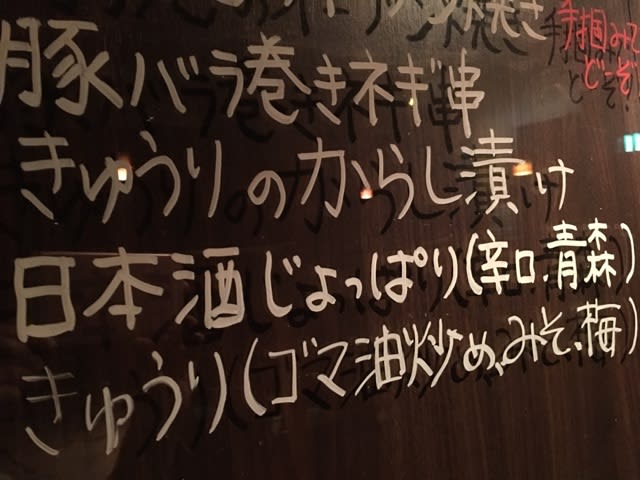 焼き
手掴みで
どうぞ
豚バラ巻きネギ串
きゅうりのからし漬け
日本酒じょっぱり(辛口、青森)
きゅうり(ゴマ油炒め、みそ、梅)